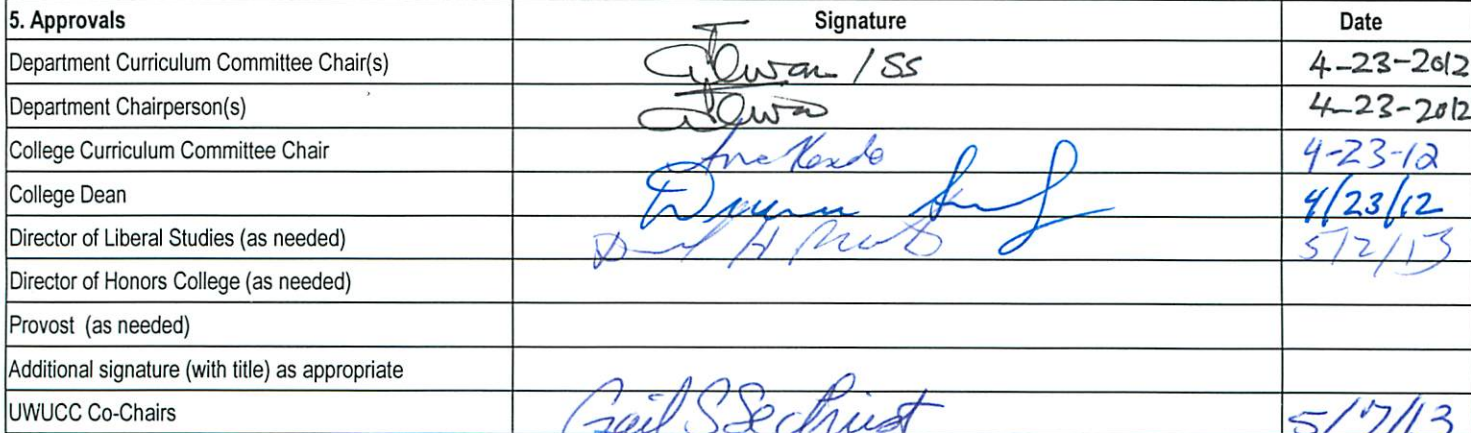 5. Approvals Signature Date
Department Curriculum Committee Chair(s) / SS 4-23-2012
Department Chairperson(s) 4-23-2012
College Curriculum Committee Chair 4-23-12
College Dean 4/23/12
Director of Liberal Studies (as needed) 5/2/13
Director of Honors College (as needed)
Provost (as needed)
Additional signature (with title) as appropriate
UWUCC Co-Chairs Gail S Sechrist 5/7/13